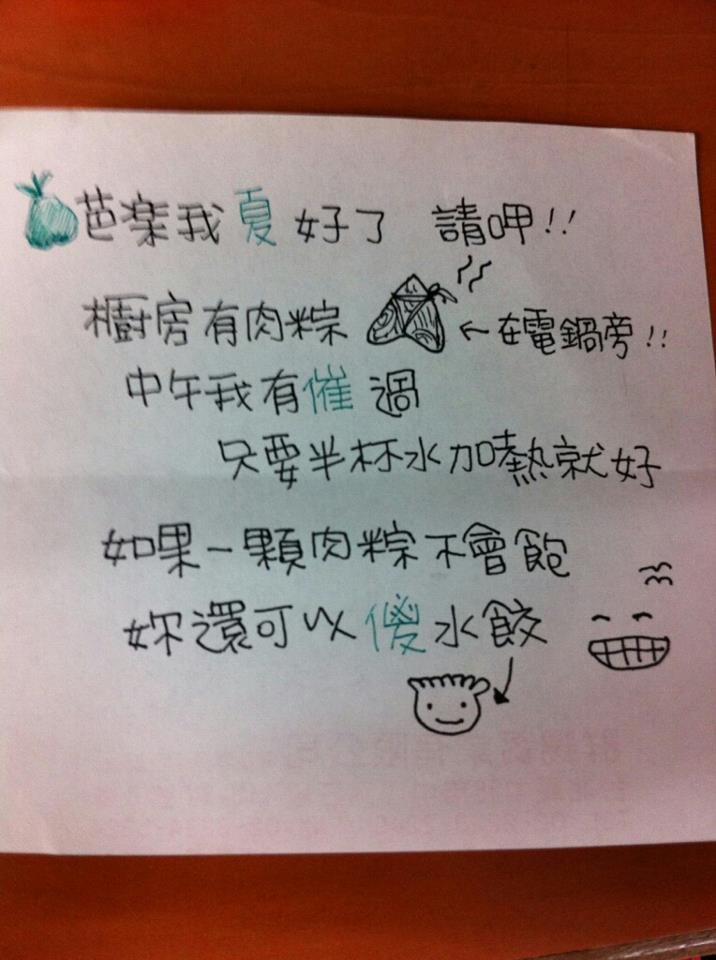 芭楽我夏好了 請呷!!
櫥房有肉粽 ←在電鍋旁!!
中午我有催過
只要半杯水加熱就好
如果一顆肉粽不會飽
妳還可以傻水餃